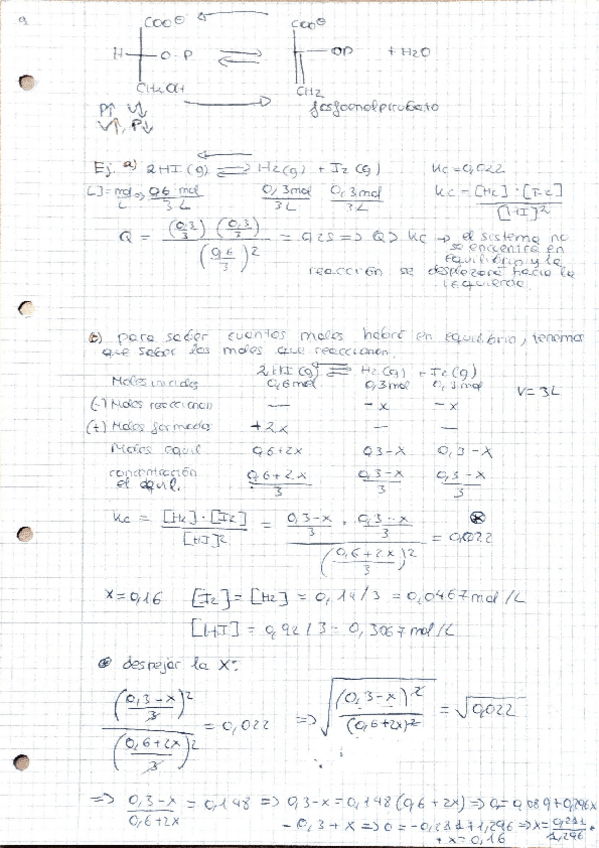 COO⊖ COO⊖
H O-P ⇌ OP + H2O
CH2OH CH2
P↑ V↓ fosfoenolpiruvato
V↑, P↓
Ej: a) 2HI(g) ⇌ H2(g) + I2(g) Kc = 0,022
[ ] = mol/L => 0,6 mol/3L 0,3mol/3L 0,3mol/3L Kc = [H2]·[I2]/[HI]^2
Q = (0,3/3)(0,3/3)/(0,6/3)^2 = 0,25 => Q > Kc → el sistema no
se encuentra en
equilibrio y la
reacción se desplazará hacia la
izquierda.
b) para saber cuántos moles habrá en equilibrio, tenemos
que saber los moles que reaccionan.
2HI(g) ⇌ H2(g) + I2(g)
Moles iniciales 0,6mol 0,3mol 0,3mol V = 3L
(-) Moles reaccionan — -x -x
(+) Moles formados +2x — —
Moles equil 0,6+2x 0,3-x 0,3-x
concentración
el equil. 0,6+2x/3 0,3-x/3 0,3-x/3
Kc = [H2]·[I2]/[HI]^2 = (0,3-x/3 · 0,3-x/3)/(0,6+2x/3)^2 = 0,022 ⊛
x=0,16 [I2] = [H2] = 0,14/3 = 0,0467mol/L
[HI] = 0,92/3 = 0,3067mol/L
⊛ despejar la X:
(0,3-x/3)^2/(0,6+2x/3)^2 = 0,022 => √((0,3-x)^2/(0,6+2x)^2) = √0,022
=> 0,3-x/0,6+2x = 0,148 => 0,3-x = 0,148(0,6+2x) => 0 = 0,089+0,296x
-0,3+x => 0 = -0,211+1,296 => x = 0,211/1,296
x = 0,16